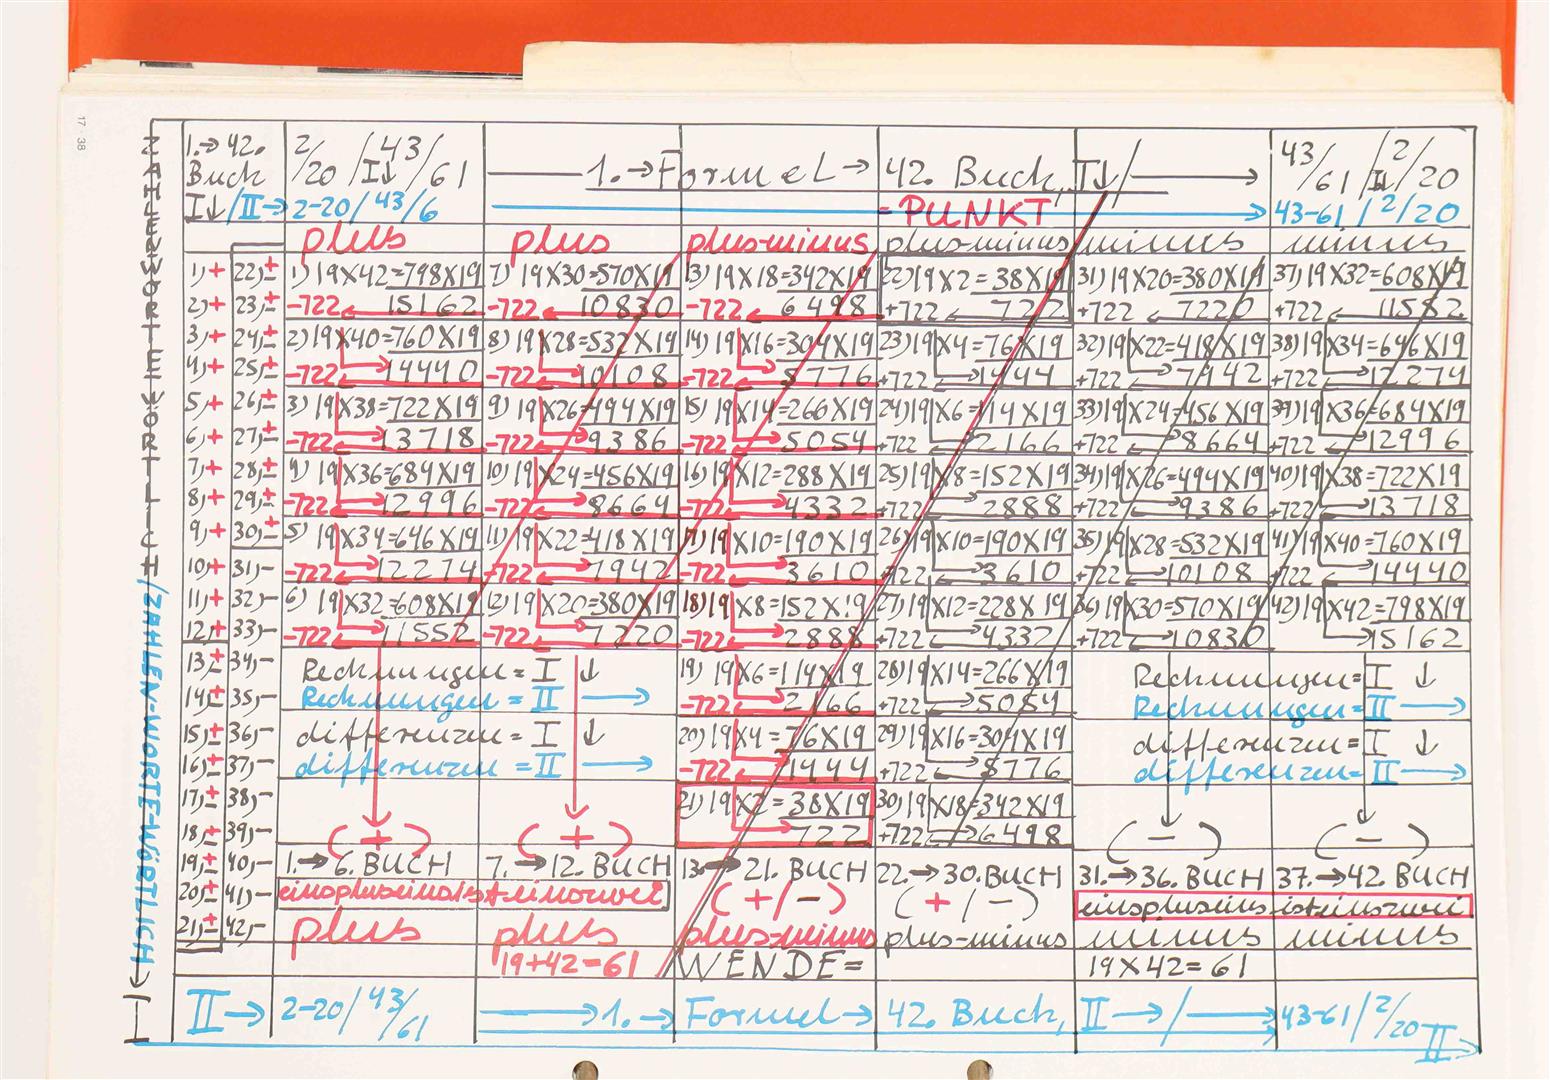 17 - 38
ZAHLERWORTEWÖRTLICH/ZAHLEN-WORTE-WÖRTLICH
1.→42. Buck
I↓/II→
2/20 /I↓ 43/61
1.→Formel→ 42. Buck, II↓/ →
43/61 /II↓ 2/20
2-20/43/6
= PUNKT
43-61/2/20
plus plus plus-minus plus-minus minus minus
1)+ 22)± 1) 19X42=798X19 7) 19X30=570X19 13) 19X18=342X19 22) 19X2=38X19 31) 19X20=380X19 37) 19X32=608X19
2)+ 23)± -722 15162 -722 10830 -722 6498 +722 722 +722 7220 +722 11552
3)+ 24)± 2) 19X40=760X19 8) 19X28=532X19 14) 19X16=304X19 23) 19X4=76X19 32) 19X22=418X19 38) 19X34=646X19
4)+ 25)± -722 14440 -722 10108 -722 5776 +722 1444 +722 7942 +722 12274
5)+ 26)± 3) 19X38=722X19 9) 19X26=494X19 15) 19X14=266X19 24) 19X6=114X19 33) 19X24=456X19 39) 19X36=684X19
6)+ 27)± -722 13718 -722 9386 -722 5054 +722 2166 +722 8664 +722 12996
7)+ 28)± 4) 19X36=684X19 10) 19X24=456X19 16) 19X12=288X19 25) 19X8=152X19 34) 19X26=494X19 40) 19X38=722X19
8)+ 29)± -722 12996 -722 8664 -722 4332 +722 2888 +722 9386 +722 13718
9)+ 30)± 5) 19X34=646X19 11) 19X22=418X19 17) 19X10=190X19 26) 19X10=190X19 35) 19X28=532X19 41) 19X40=760X19
10)+ 31)- -722 12274 -722 7942 -722 3610 +722 3610 +722 10108 +722 14440
11)+ 32)- 6) 19X32=608X19 12) 19X20=380X19 18) 19X8=152X19 27) 19X12=228X19 36) 19X30=570X19 42) 19X42=798X19
12)+ 33)- -722 11552 -722 7220 -722 2888 +722 4332 +722 10830 15162
13)± 34)- Rechnungen= I ↓ 19) 19X6=114X19 28) 19X14=266X19 Rechnungen= I ↓
14)± 35)- Rechnungen= II → -722 2166 +722 5054 Rechnungen= II →
15)± 36)- differenzen= I ↓ 20) 19X4=76X19 29) 19X16=304X19 differenzen= I ↓
16)± 37)- differenzen= II → -722 1444 +722 5776 differenzen= II →
17)± 38)- 21) 19X2=38X19 30) 19X18=342X19
18)± 39)- (+) (+) 722 +722 6498 (-) (-)
19)± 40)- 1.→6. BUCH 7.→12. BUCH 13.→21. BUCH 22.→30. BUCH 31.→36. BUCH 37.→42. BUCH
20)± 41)- einspluseinsisteinszwei (+/-) (+/-) einspluseins-isteinszwei
21)± 42)- plus plus plus-minus plus-minus minus minus
19+42=61 WENDE= 19X42=61
II→ 2-20/43/61 →1.→ Formel→ 42. Buck, II→/→ 43-61/2/20 II